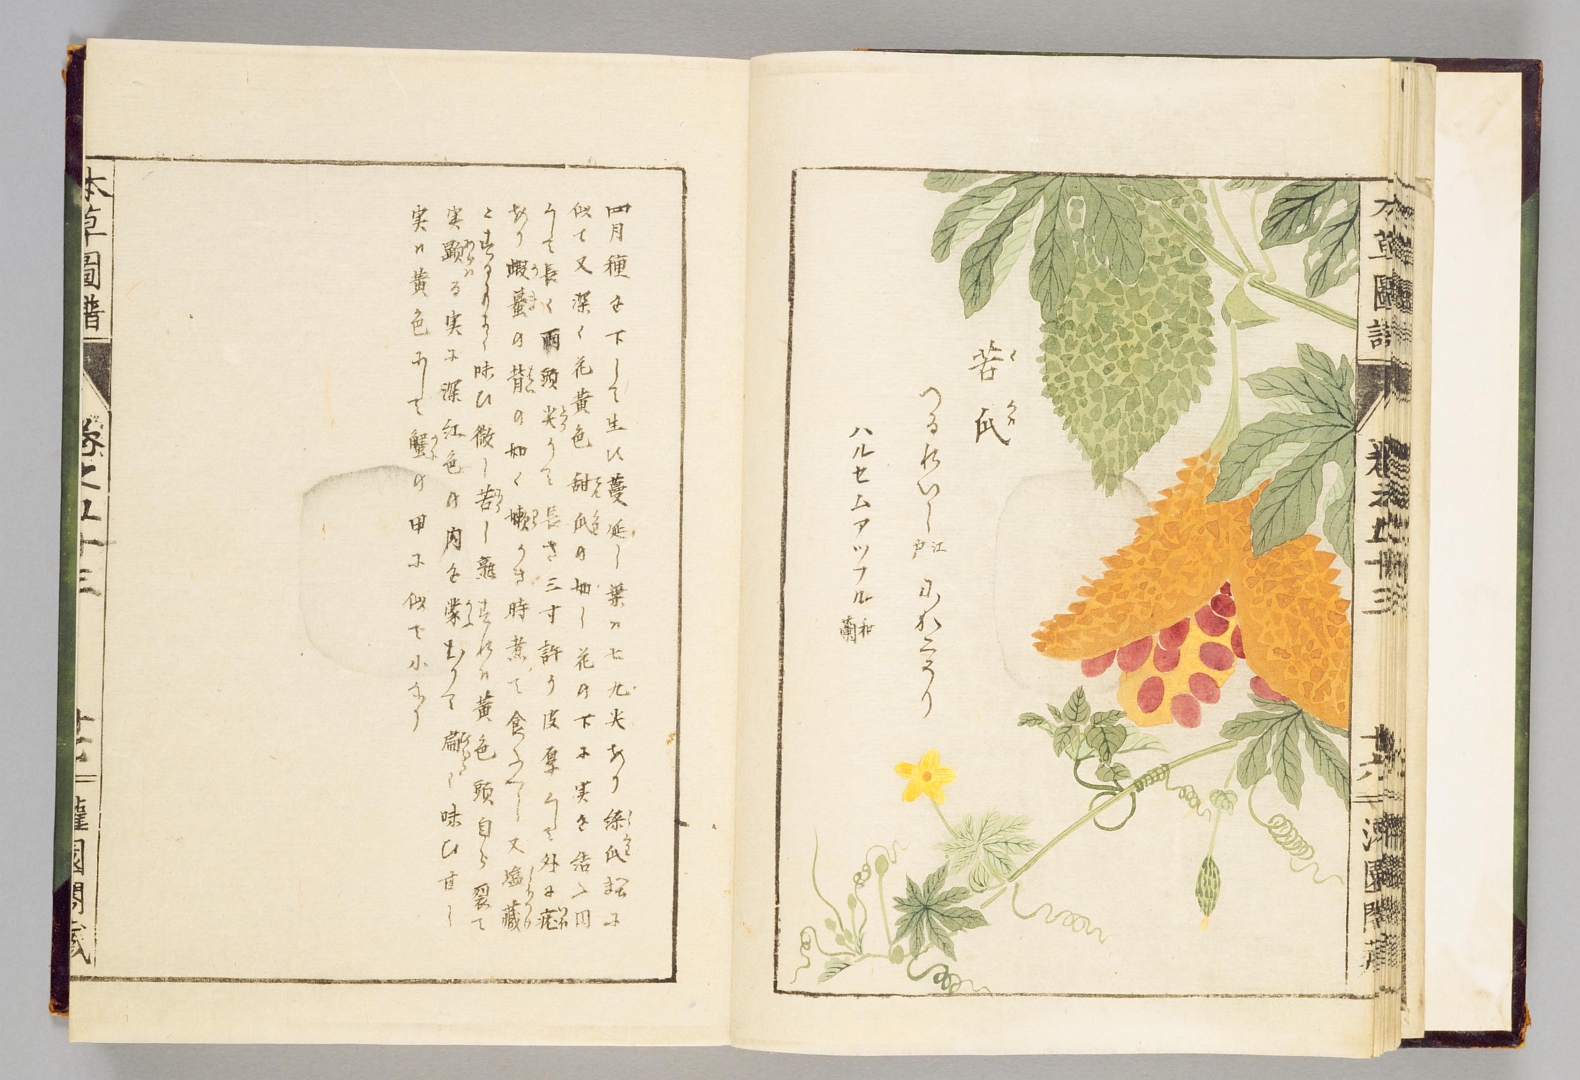 本草圖譜
苦瓜
くくわ
つるれいし 江戸 にがごうり
ハルセムアツフル 和蘭
四月種を下して生ひ蔓延し葉ハ七九尖あり絲瓜葉に
似て又深く花黄色甜瓜の如し花の下に実を結ふ円
くして長く両頭尖りて長さ三寸許り皮厚くして外に痣
あり蝦蟇の背の如く嫩き時煮て食ふへし又塩蔵
味ひ微し苦し 黄色頭自ら裂て
実顕る実に深紅色の肉を蒙むりて扁く味ひ甘し
実ハ黄色にして蟹の甲に似て小なり
本草圖譜 卷之五十三